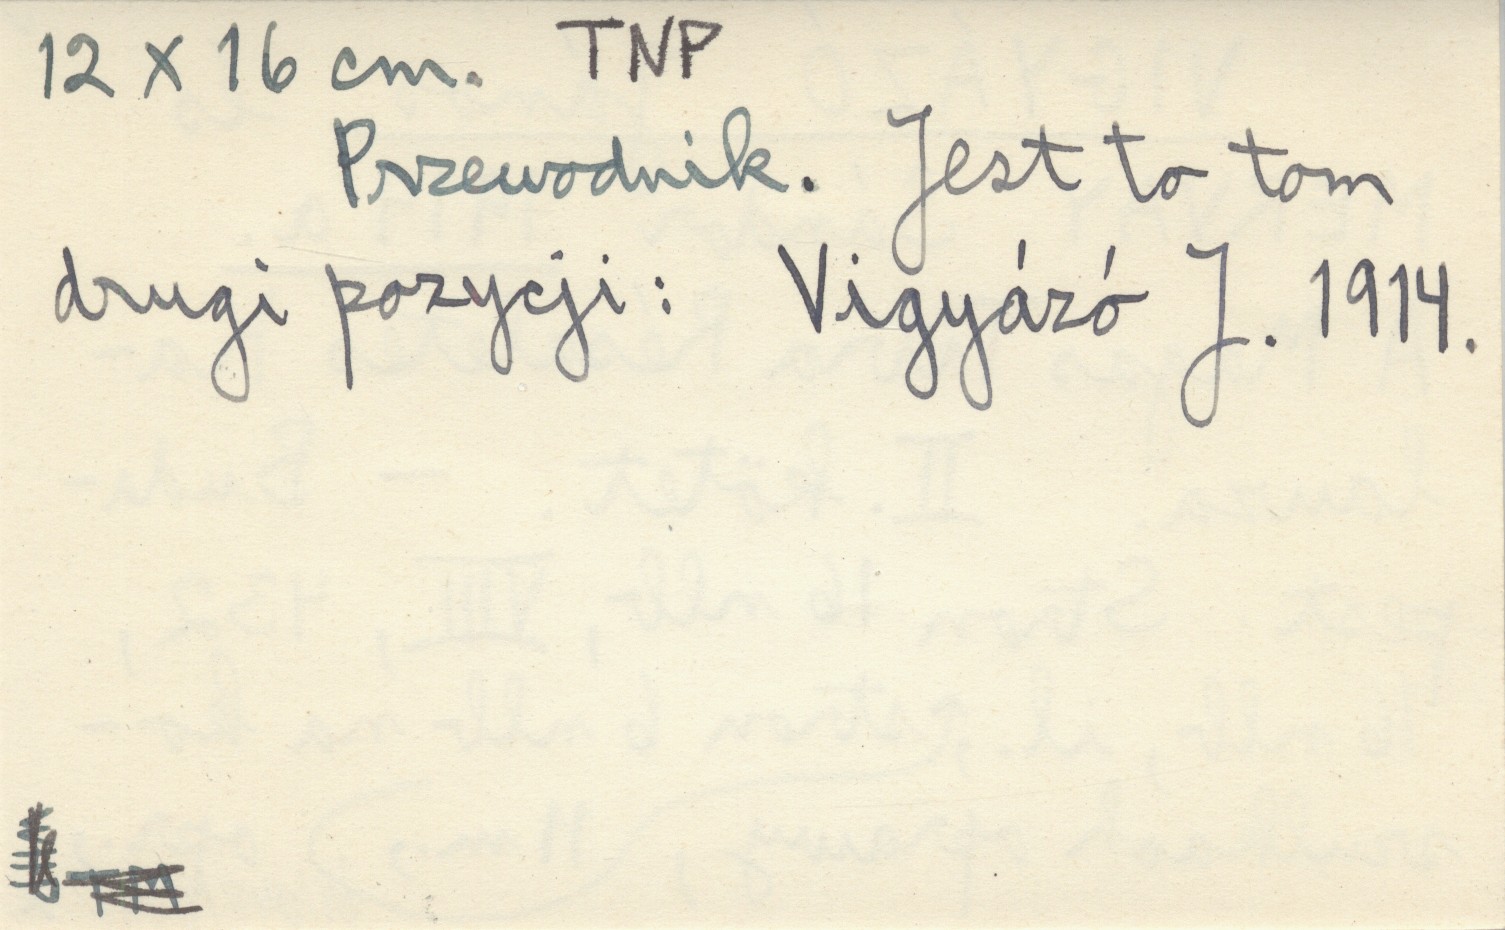 12 x 16 cm. TNP
Przewodnik. Jest to tom
drugi pozycji: Vigyázó J. 1914.